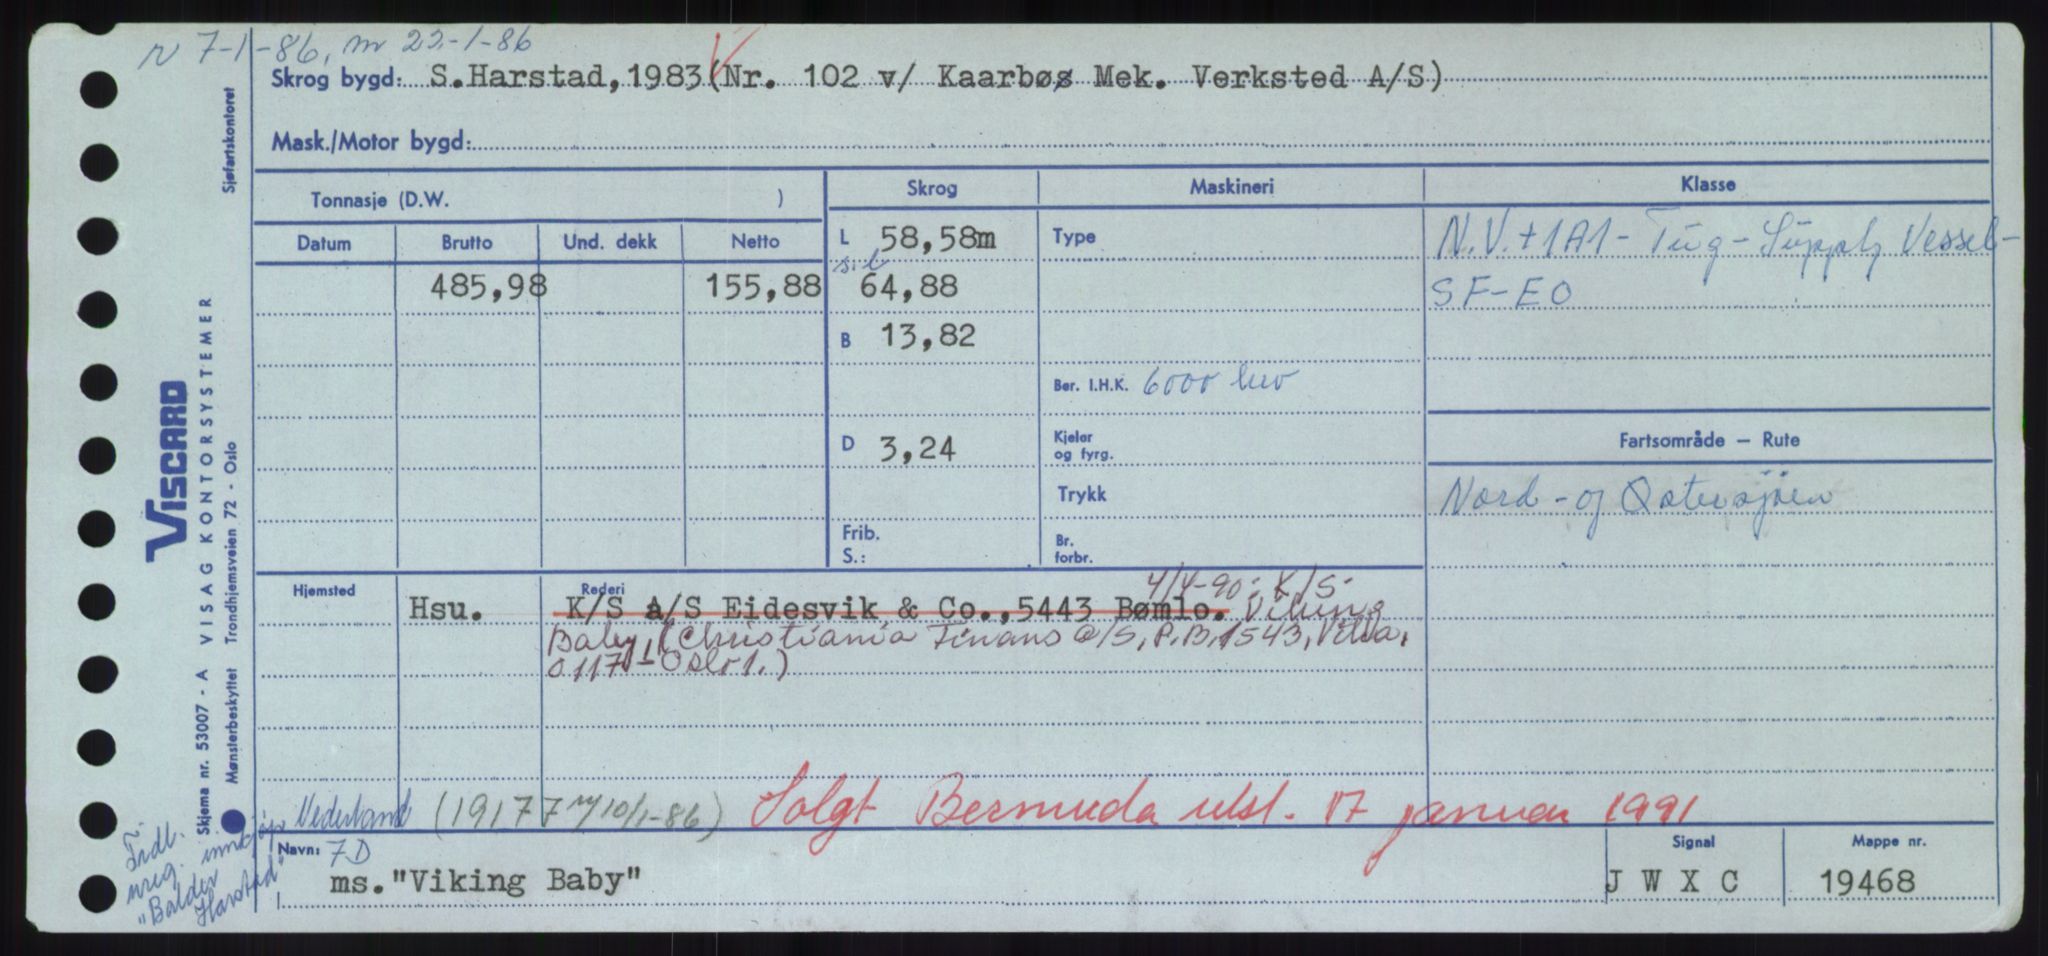 N 7-1-86, m 22-1-86
Skrog bygd: S.Harstad, 1983 (Nr. 102 v/ Kaarbøs Mek. Verksted A/S)
Mask./Motor bygd:
Tonnasje (D.W. )
Datum Brutto Und. dekk Netto
485,98 155,88
Skrog
L 58,58m
64,88
B 13,82
D 3,24
Frib.
S.:
Maskineri
Type
Ber. I.H.K. 6000
Kjeler
og fyrg.
Trykk
Br.
forbr.
Klasse
N.V.+1A1- Tug-Supply Vessel-
SF-EO
Fartsområde — Rute
Nord- og Østersjøen
Hjemsted Rederi
4/4-90: K/S
Hsu. K/S A/S Eidesvik & Co., 5443 Bømlo. Viking
Baby, (Christiania Finans a/S, P.B. 1543, Vika,
0117 - Oslo 1.)
Nederland (19177 10/1-86) Solgt Bermuda utsl. 17 januar 1991
Tidl.
ureg. innkjøp
"Balder
Harstad"
Navn: 7D
ms."Viking Baby"
Signal
J W X C
Mappe nr.
19468
VISCARD
VISAG KONTORSYSTEMER
Sjøfartskontoret
Skjema nr. 53007 - A
Mønsterbeskyttet Trondhjemsveien 72 - Oslo